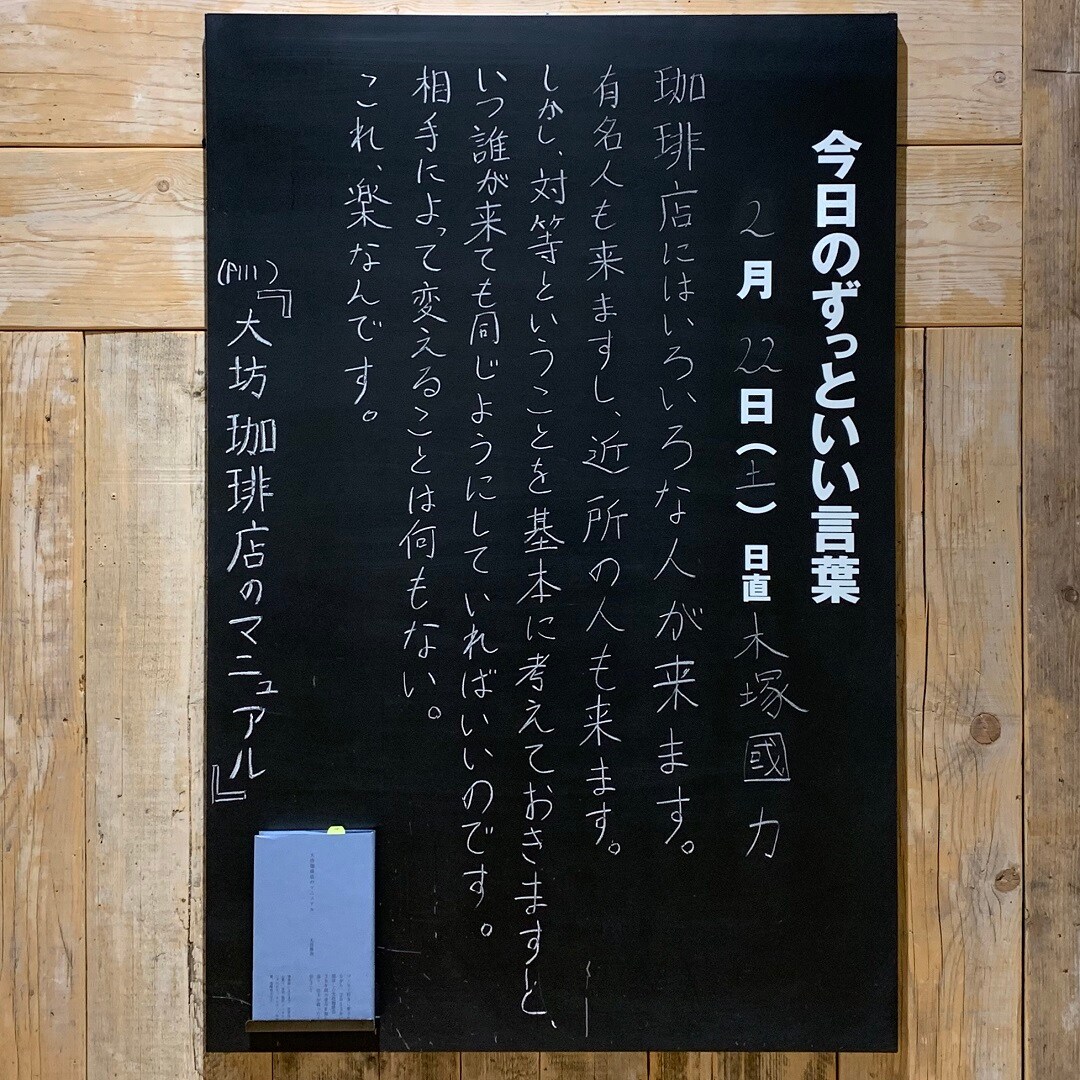 今日のずっといい言葉
2月22日(土) 日直 木塚國力
珈琲店にはいろいろな人が来ます。
有名人も来ますし、近所の人も来ます。
しかし、対等ということを基本に考えておきますと、
いつ誰が来ても同じようにしていればいいのです。
相手によって変えることは何もない。
これ、楽なんです。
(P111)『大坊珈琲店のマニュアル』
大坊珈琲店のマニュアル 大坊勝次